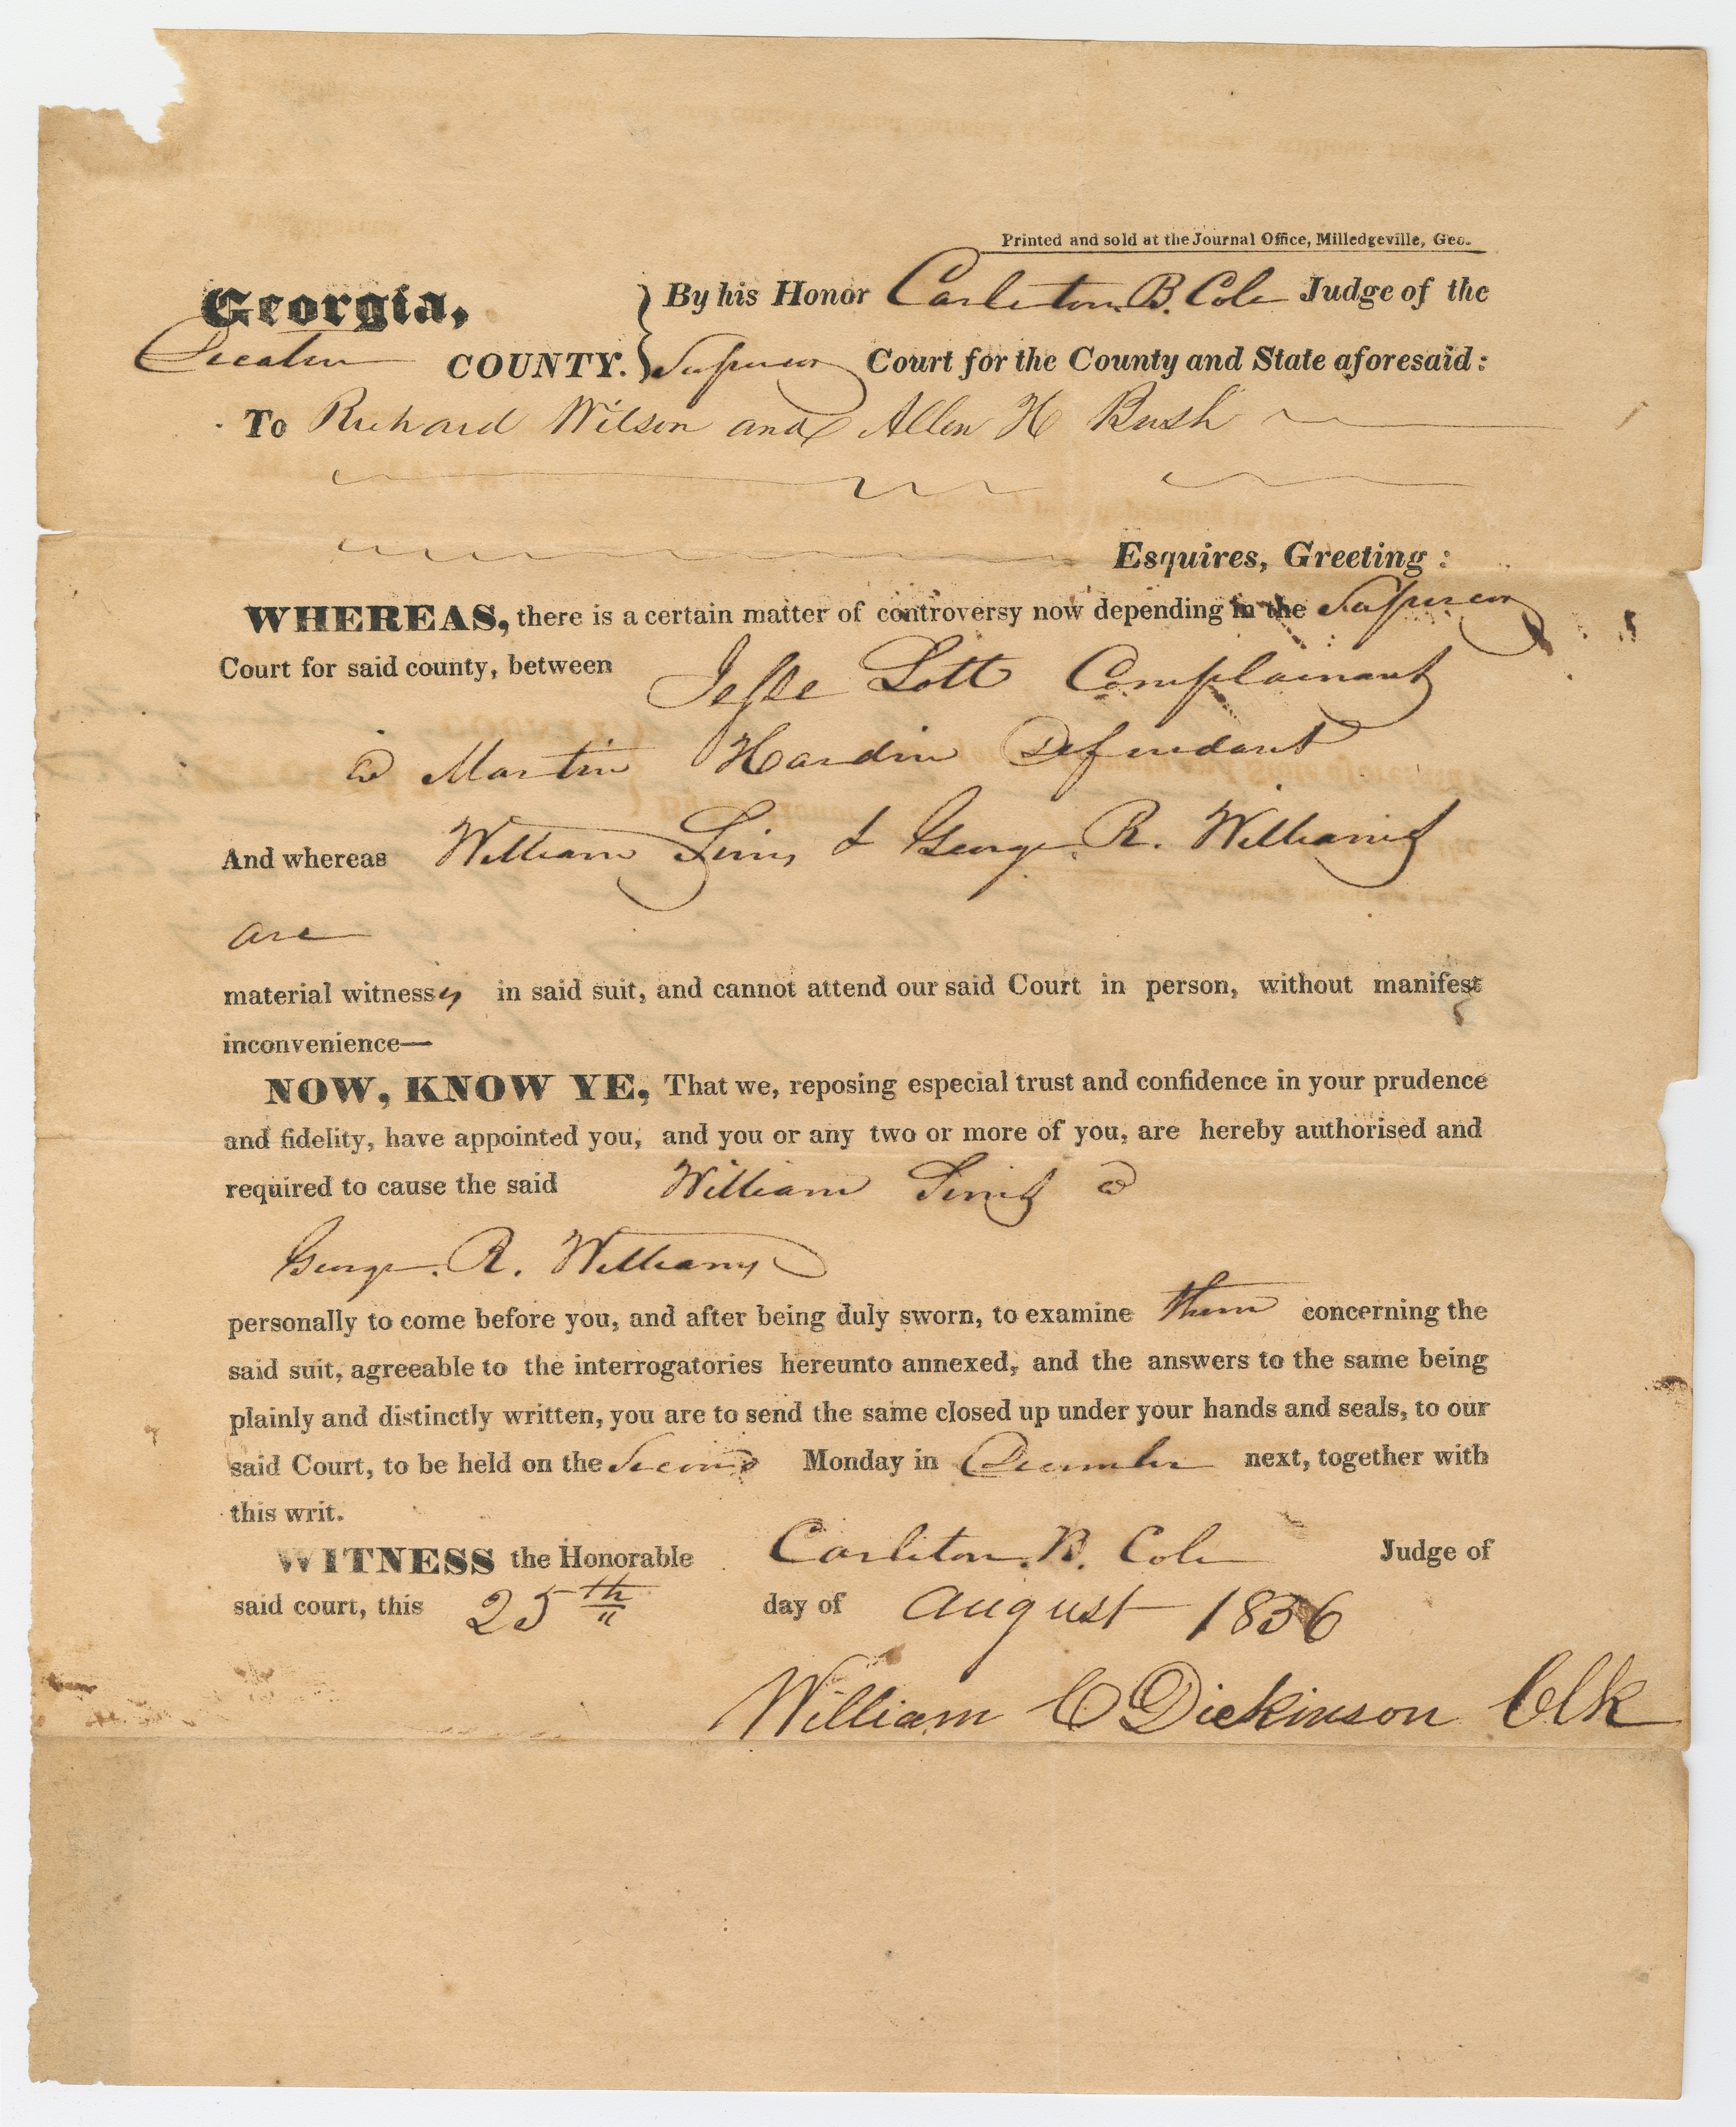 Printed and sold at the Journal Office, Milledgeville, Geo.
Georgia, } By his Honor Carleton B. Cole Judge of the
Decatur COUNTY. } Superior Court for the County and State aforesaid:
To Richard Wilson and Allen H Bush
Esquires, Greeting:
WHEREAS, there is a certain matter of controversy now depending in the Superior
Court for said county, between Jesse Lott Complainant
& Martin Hardin Defendant
And whereas William Sims & George. R. Williams
are
material witnesses in said suit, and cannot attend our said Court in person, without manifest
inconvenience—
NOW, KNOW YE, That we, reposing especial trust and confidence in your prudence
and fidelity, have appointed you, and you or any two or more of you, are hereby authorised and
required to cause the said William Sims &
George. R. Williams
personally to come before you, and after being duly sworn, to examine them concerning the
said suit, agreeable to the interrogatories hereunto annexed, and the answers to the same being
plainly and distinctly written, you are to send the same closed up under your hands and seals, to our
said Court, to be held on the Second Monday in December next, together with
this writ.
WITNESS the Honorable Carleton. B. Cole Judge of
said court, this 25th day of August 1836
William C Dickinson Clk